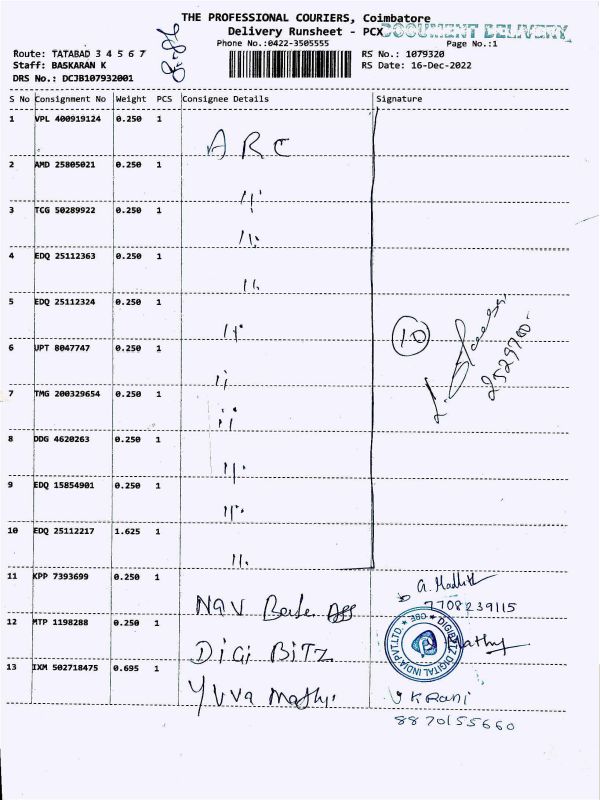 THE PROFESSIONAL COURIERS, Coimbatore
Delivery Runsheet - PCX
DOCUMENT DELIVERY
Phone No.:0422-3505555
Page No.:1
Route: TATABAD 3 4 5 6 7
RS No.: 1079320
Staff: BASKARAN K
RS Date: 16-Dec-2022
DRS No.: DCJB107932001
S No Consignment No Weight PCS Consignee Details Signature
1 VPL 400919124 0.250 1 ARC
2 AMD 25805021 0.250 1 11
3 TCG 50289922 0.250 1 11.
4 EDQ 25112363 0.250 1 11.
5 EDQ 25112324 0.250 1 11
10
2529700
6 UPT 8047747 0.250 1 11
7 TMG 200329654 0.250 1 11
8 DDG 4620263 0.250 1 11.
9 EDQ 15854901 0.250 1 11.
10 EDQ 25112217 1.625 1 11.
11 KPP 7393699 0.250 1 Nav Bale
7708239115
12 MTP 1198288 0.250 1 DIGI BITZ
360 ★ DIGIBITZ DIGITAL INDIA PVT.LTD. ★
13 IXM 502718475 0.695 1 Yuva Mathi
V K Rani
8870155660